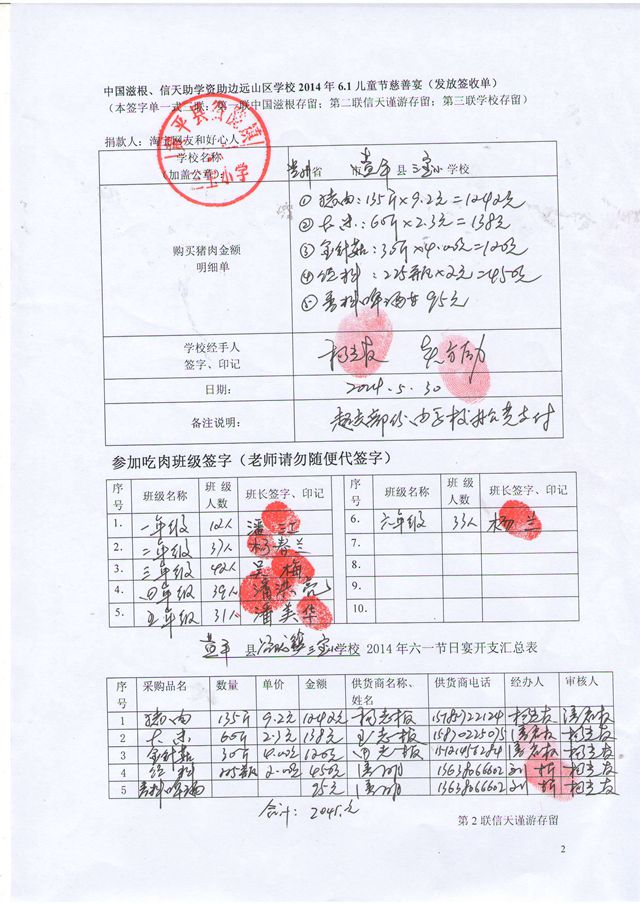 中国滋根、信天助学资助边远山区学校2014年6.1儿童节慈善宴（发放签收单）
（本签字单一式三联：第一联中国滋根存留；第二联信天谨游存留；第三联学校存留）
捐款人：淘宝网友和好心人
学校名称
（加盖公章）：
贵州省 市黄平县三宝小学校
购买猪肉金额
明细单
①猪肉：135斤×9.2元=1242元
②大米：60斤×2.3元=138元
③金针菇：30斤×4.00元=120元
④饮料：225瓶×2元=450元
⑤香料啤酒 95元
学校经手人
签字、印记
日期：
2014.5.30
备注说明：
超支部份由学校 支付
参加吃肉班级签字（老师请勿随便代签字）
序号 班级名称 班级人数 班长签字、印记 序号 班级名称 班级人数 班长签字、印记
1. 一年级 12人 潘江 6. 六年级 33人 杨兰
2. 二年级 37人 杨春兰 7.
3. 三年级 42人 吴梅 8.
4. 四年级 39人 潘洪亮 9.
5. 五年级 31人 潘美华 10.
黄平县 镇三宝小学校 2014年六一节日宴开支汇总表
序号 采购品名 数量 单价 金额 供货商名称、姓名 供货商电话 经办人 审核人
1 猪肉 135斤 9.2元 1242元
2 大米 60斤 2.3元 138元
3 金针菇 30斤 4.00元 120元
4 饮料 225瓶 2.00元 450元 13638066602
5 香料啤酒 95元 13638066602
合计：2045元
第2联信天谨游存留
2